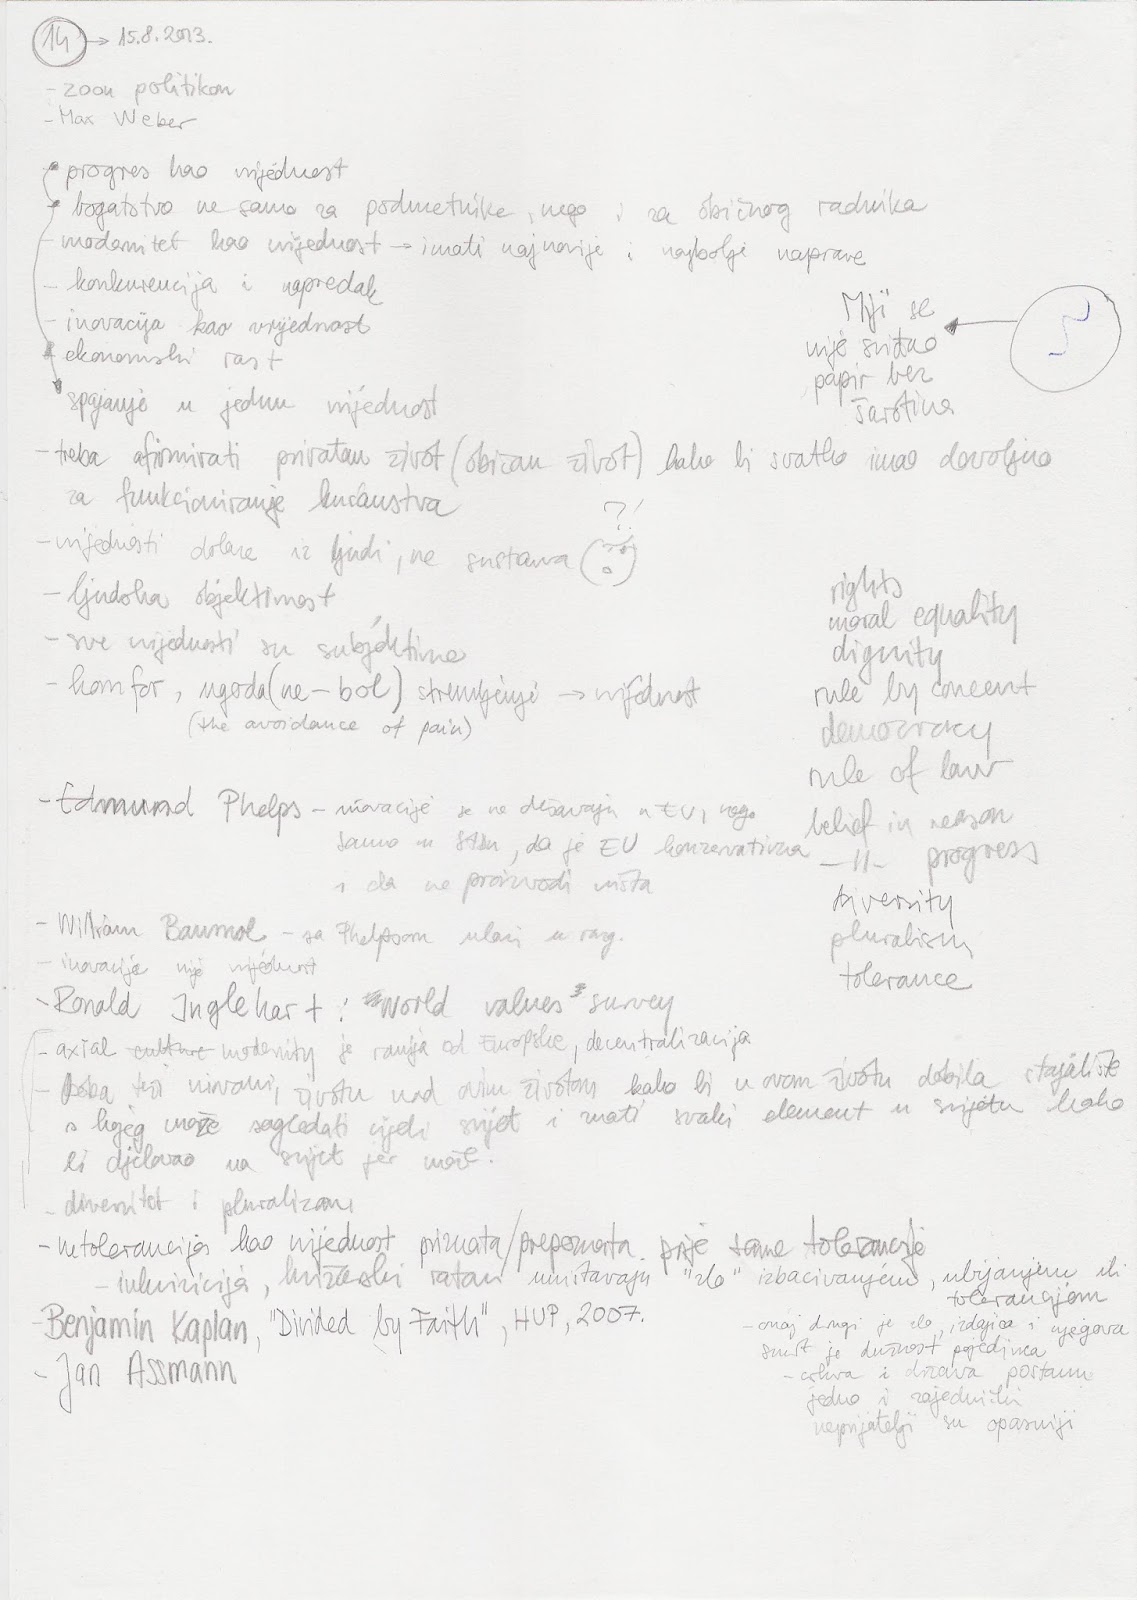 14 → 15.8.2013.
- zoon politikon
- Max Weber
progres kao vrijednost
bogatstvo ne samo za poduzetnike, nego i za običnog radnika
- modernitet kao vrijednost → imati najnovije i najbolje naprave
- konkurencija i napredak
- inovacija kao vrijednost
ekonomski rast
spajanje u jednu vrijednost
Miji se
nije svidio
papir bez
šarotina
- treba afirmirati privatan život (običan život) kako bi svatko imao dovoljno
za funkcioniranje kućanstva
- vrijednosti dolaze iz ljudi, ne sustava ?!
- ljudska objektivnost
- sve vrijednosti su subjektivne
- komfor, ugoda (ne-bol) stremljenje → vrijednost
(the avoidance of pain)
rights
moral equality
dignity
rule by concent
democracy
rule of law
belief in reason
-11- progress
diversity
pluralism
tolerance
- Edmund Phelps - inovacije se ne dešavaju u EU, nego
samo u SAD, da je EU konzervativna
i da ne proizvodi ništa
- William Baumol - sa Phelpsom ulazi u razg.
- inovacija nije vrijednost
- Ronald Inglehart: "World values" survey
- axial culture modernity je ranija od Europske, decentralizacija
- nirvani, životu nad ovim životom kako bi u ovom životu dobila stajalište
s kojeg može sagledati cijeli svijet i znati svaki element u svijetu kako
bi djelovao na svijet jer može.
- diverzitet i pluralizam
- netolerancija kao vrijednost priznata/prepoznata prije same tolerancije
- inkvizicija, križarski ratovi uništavaju "zlo" izbacivanjem, ubijanjem ili
toleriranjem
- Benjamin Kaplan, "Divided by Faith", HUP, 2007.
- Jan Assmann
- onaj drugi je zlo, izdajica i njegova
smrt je dužnost pojedinca
- crkva i država postanu
jedno i zajednički
neprijatelji su opasniji